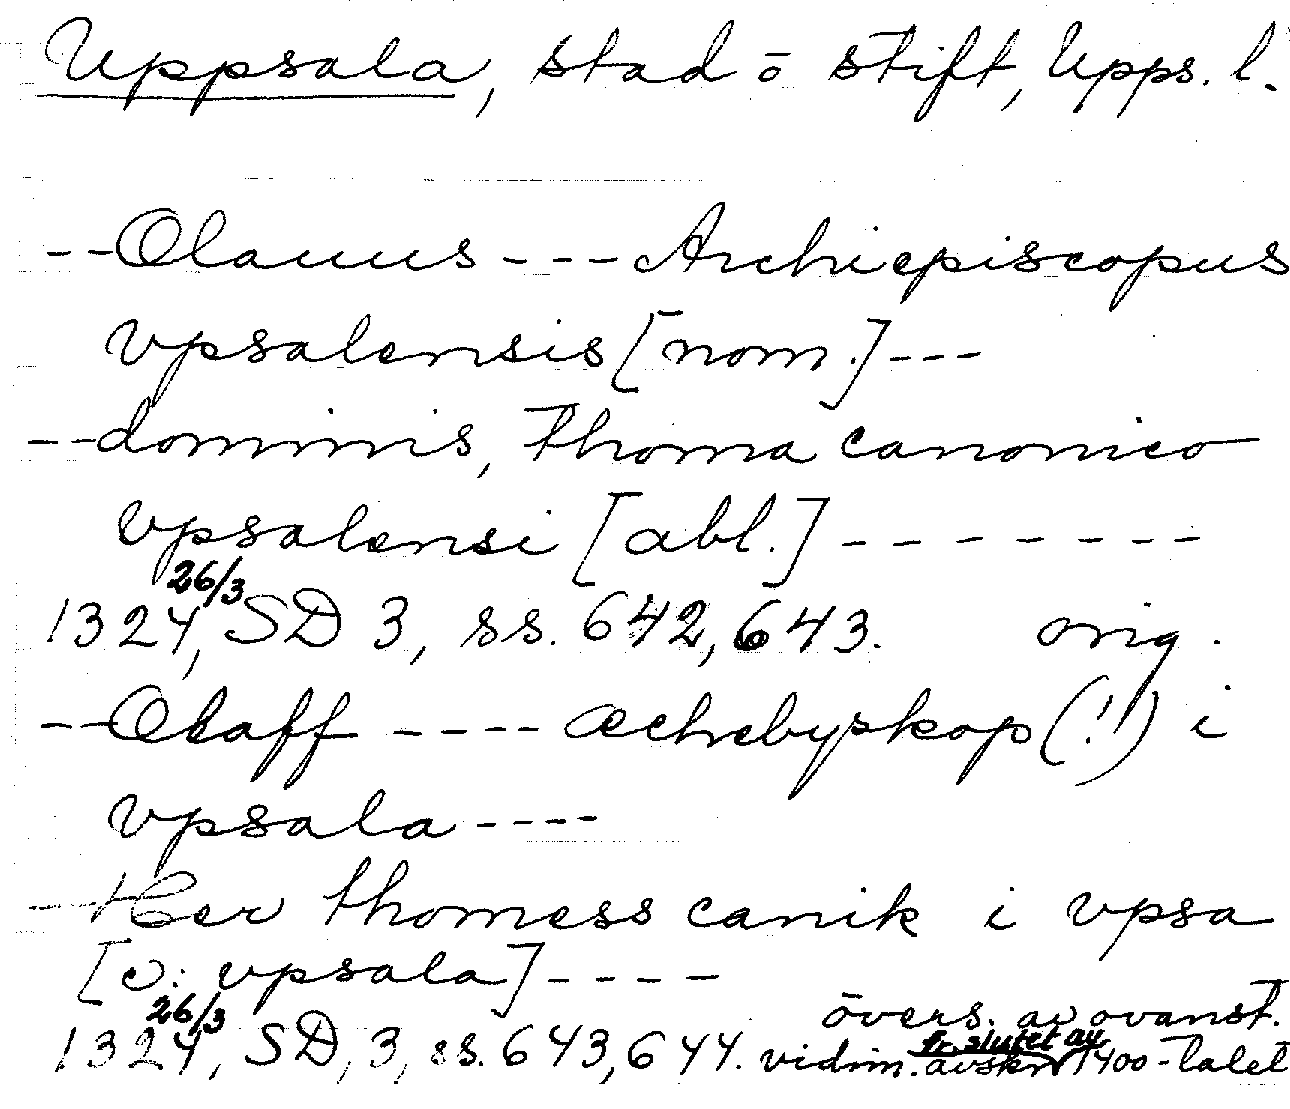 Uppsala, stad o stift, Upps. l.
--Olauus --- Archiepiscopus
vpsalensis [nom.] ---
--dominis, Thoma canonico
vpsalensi [abl.] -------
26/3
1324, SD 3, ss. 642, 643. orig.
--Olaff ---- Ærchebyskop (!) i
vpsala ----
--Her thomess canik i vpsa
[ɔ: vpsala] ----
26/3 övers. av ovanst.
1324, SD, 3, ss. 643, 644. vidim. avskr. fr. slutet av 1400-talet